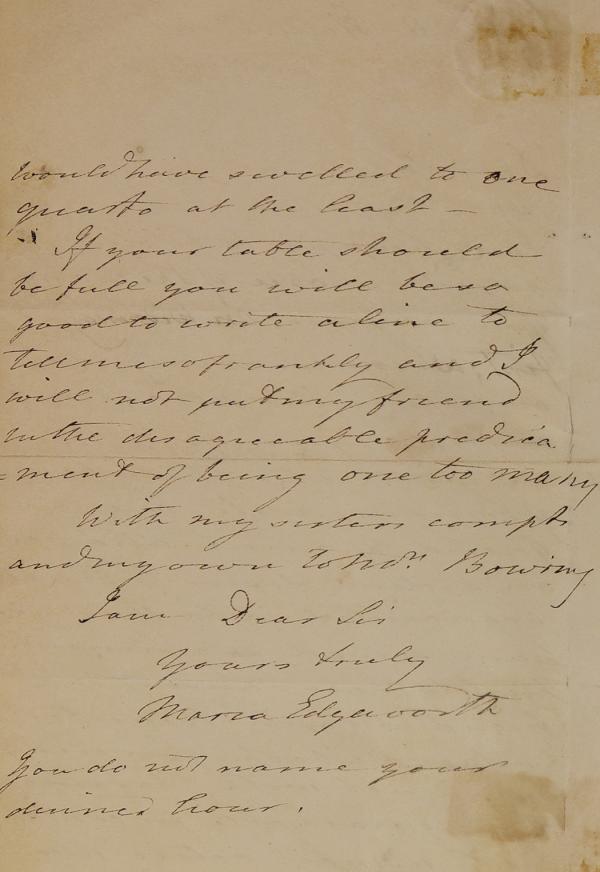 would have swelled to one
quarto at the least —
If your table should
be full you will be so
good to write a line to
tell me so frankly and I
will not put my friend
in the disagreeable predica
=ment of being one too many
With my sisters compts
and my own to Mrs. Bowring
I am Dear Sir
Yours truly
Maria Edgeworth
You do not name your
dinner hour.